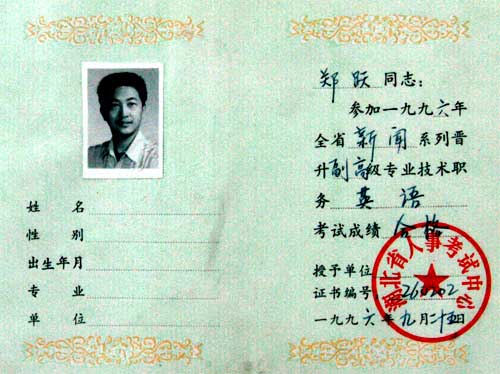 姓名
性别
出生年月
专业
单位
郑跃同志:
参加一九九六年
全省新闻系列晋
升副高级专业技术职
务英语
考试成绩合格
授予单位
证书编号:
一九九六年九月二十五日
湖北省人事考试中心